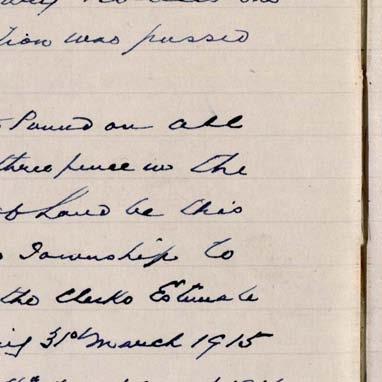 tion was passed
Pound on all
three pence in the
of Land be this
Township to
the Clerks Estimate
31st March 1915